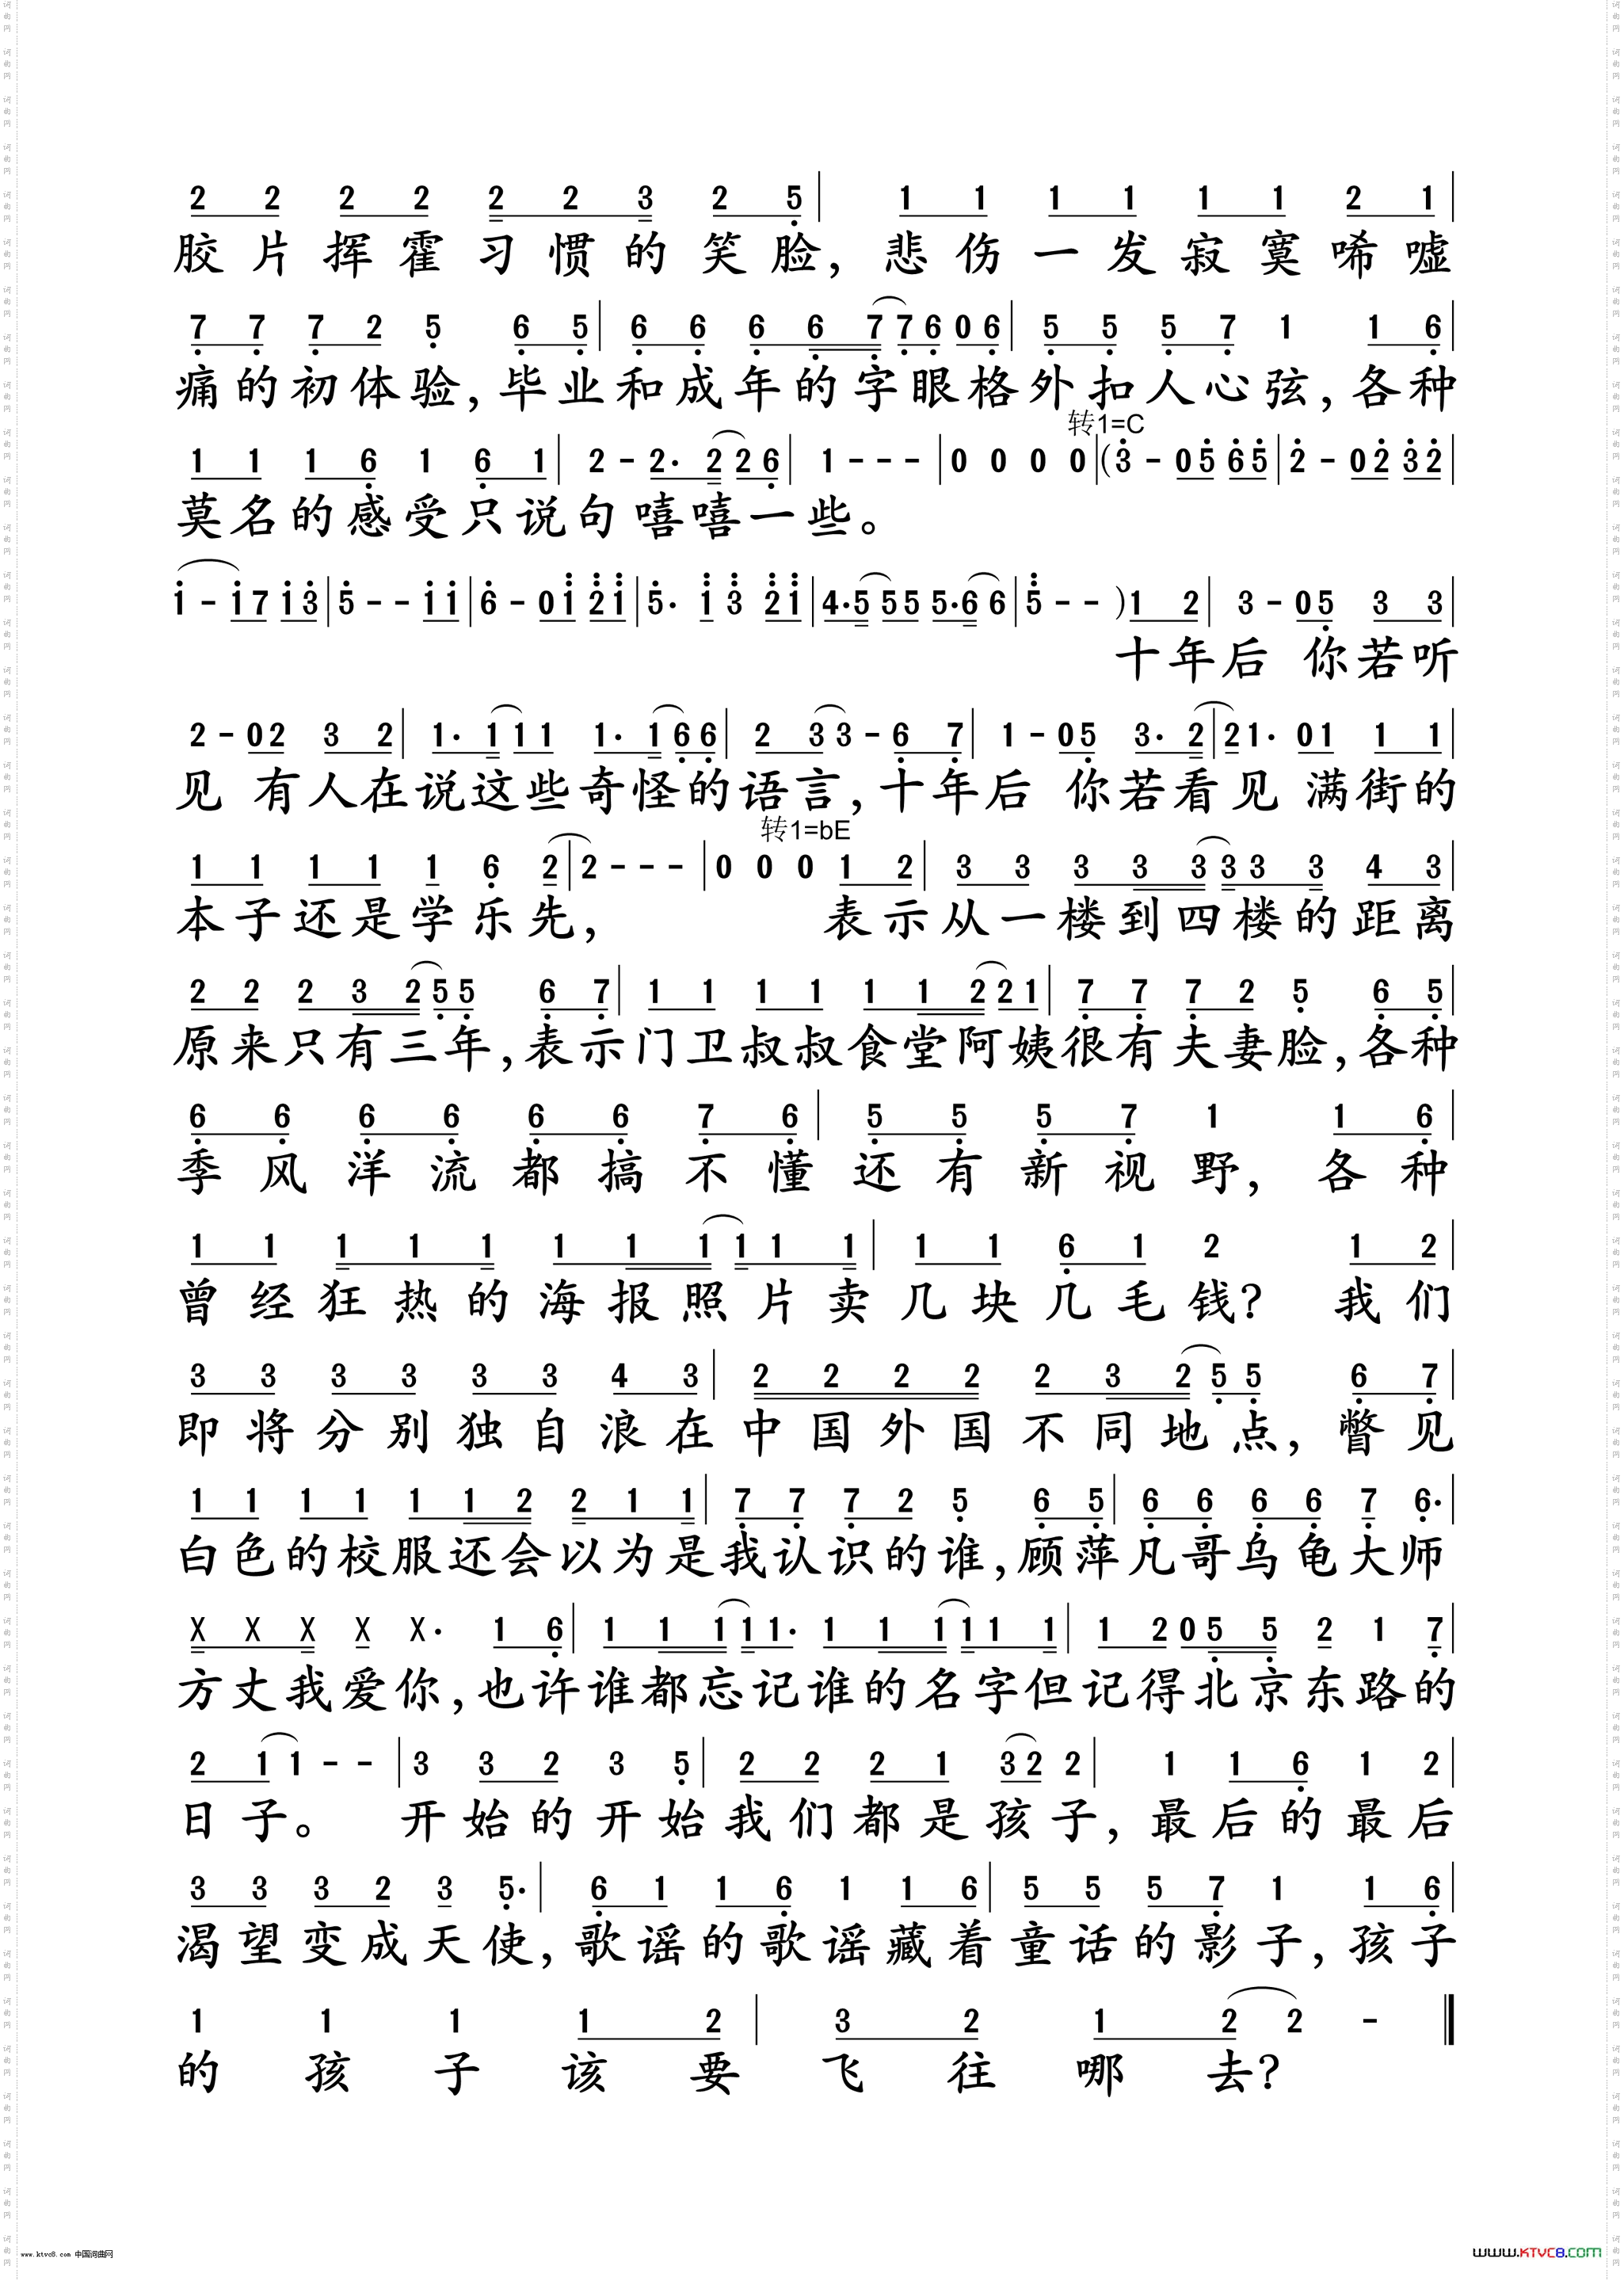 2 2 2 2 2 2 3 2 5 | 1 1 1 1 1 1 2 1 |
胶片挥霍习惯的笑脸, 悲伤一发寂寞唏嘘
7 7 7 2 5 6 5 | 6 6 6 6 7 7 6 0 6 | 5 5 5 7 1 1 6 |
痛的初体验, 毕业和成年的字眼格外扣人心弦, 各种
转1=C
1 1 1 6 1 6 1 | 2 - 2· 2 2 6 | 1 - - - | 0 0 0 0 | (3 - 0 5 6 5 | 2 - 0 2 3 2 |
莫名的感受只说句嘻嘻一些。
1 - 1 7 1 3 | 5 - - 1 1 | 6 - 0 1 2 1 | 5· 1 3 2 1 | 4· 5 5 5 5· 6 6 | 5 - - ) 1 2 | 3 - 0 5 3 3 |
十年后 你若听
2 - 0 2 3 2 | 1· 1 1 1 1· 1 6 6 | 2 3 3 - 6 7 | 1 - 0 5 3· 2 | 2 1· 0 1 1 1 |
见 有人在说这些奇怪的语言, 十年后 你若看见 满街的
转1=bE
1 1 1 1 1 6 2 | 2 - - - | 0 0 0 1 2 | 3 3 3 3 3 3 3 3 4 3 |
本子还是学乐先, 表示从一楼到四楼的距离
2 2 2 3 2 5 5 6 7 | 1 1 1 1 1 1 2 2 1 | 7 7 7 2 5 6 5 |
原来只有三年, 表示门卫叔叔食堂阿姨很有夫妻脸, 各种
6 6 6 6 6 6 7 6 | 5 5 5 7 1 1 6 |
季风洋流都搞不懂还有新视野, 各种
1 1 1 1 1 1 1 1 1 1 1 | 1 1 6 1 2 1 2 |
曾经狂热的海报照片卖几块几毛钱? 我们
3 3 3 3 3 3 4 3 | 2 2 2 2 2 3 2 5 5 6 7 |
即将分别独自浪在中国外国不同地点, 瞥见
1 1 1 1 1 1 2 2 1 1 | 7 7 7 2 5 6 5 | 6 6 6 6 7 6· |
白色的校服还会以为是我认识的谁, 顾萍凡哥乌龟大师
X X X X X· 1 6 | 1 1 1 1 1· 1 1 1 1 1 1 | 1 2 0 5 5 2 1 7 |
方丈我爱你, 也许谁都忘记谁的名字但记得北京东路的
2 1 1 - - | 3 3 2 3 5 | 2 2 2 1 3 2 2 | 1 1 6 1 2 |
日子。 开始的开始我们都是孩子, 最后的最后
3 3 3 2 3 5· | 6 1 1 6 1 1 6 | 5 5 5 7 1 1 6 |
渴望变成天使, 歌谣的歌谣藏着童话的影子, 孩子
1 1 1 1 2 | 3 2 1 2 2 - ‖
的孩子该要飞往哪去?
www.ktvc8.com 中国词曲网
WWW.KTVC8.COM